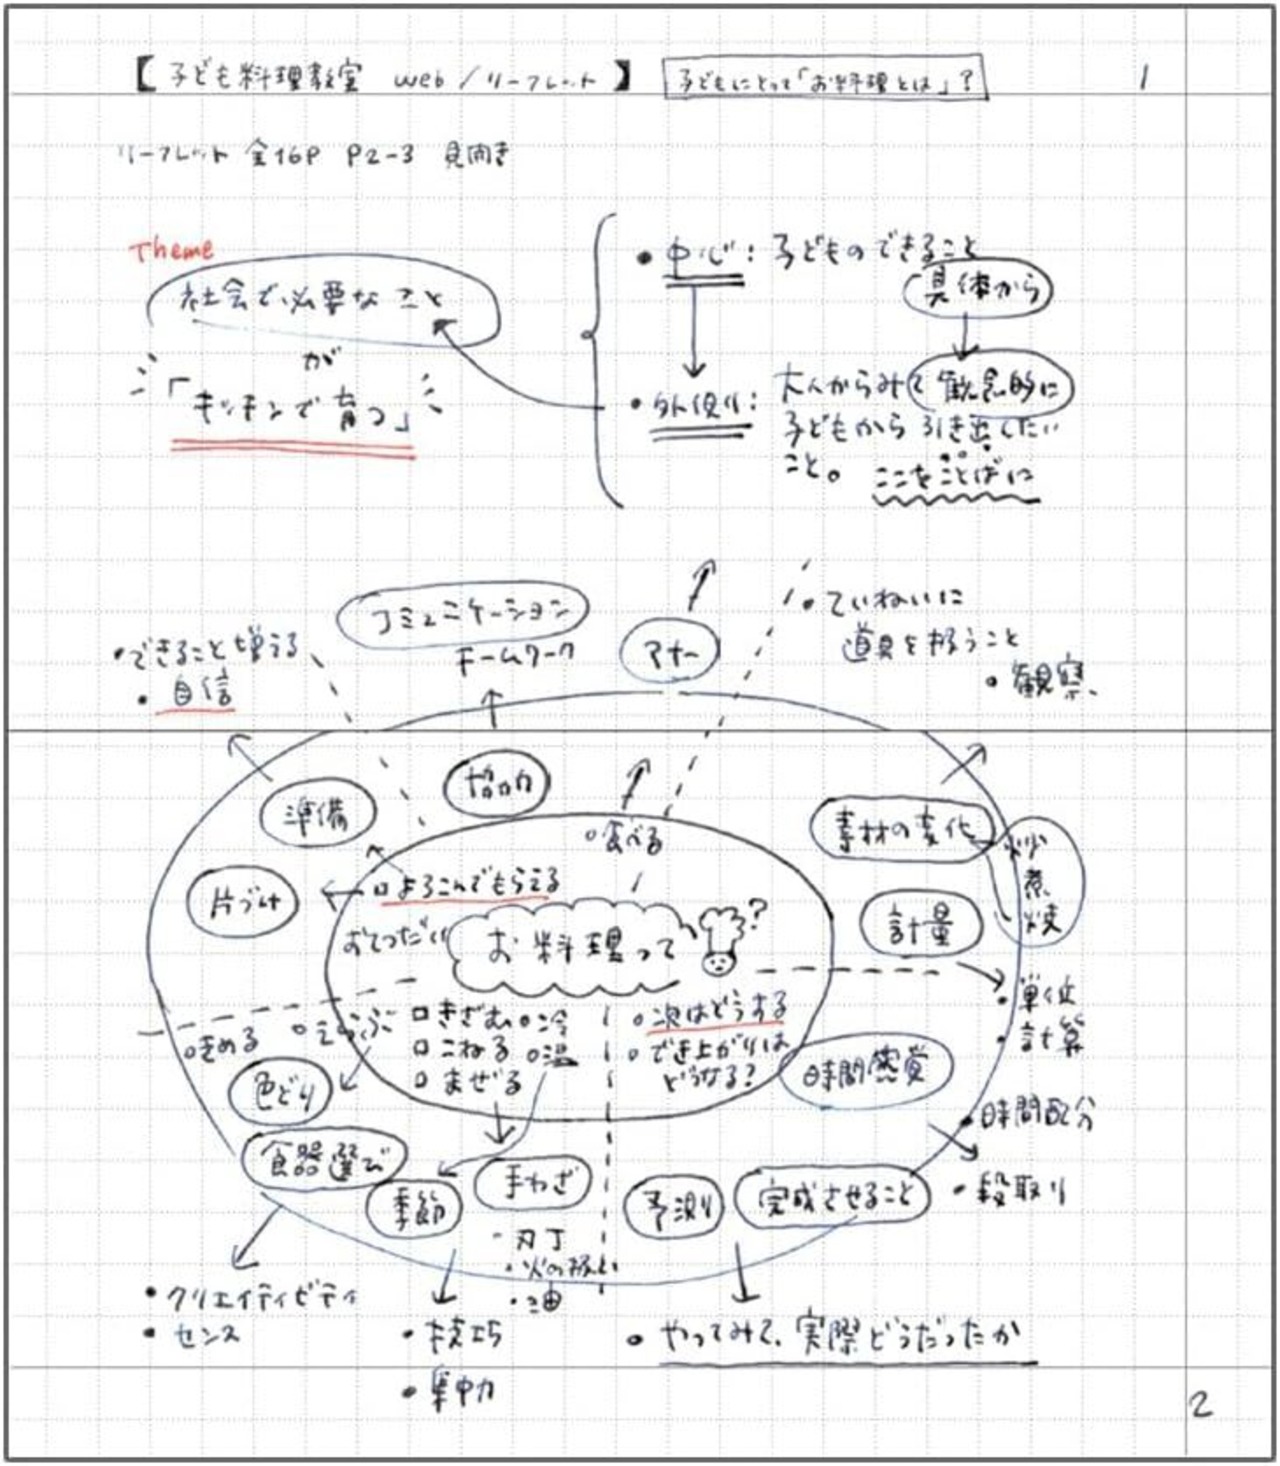 【子ども料理教室 web/リーフレット】
子どもにとって「お料理とは」?
1
リーフレット 全16P P2-3 見開き
Theme
社会で必要なこと
が
「キッチンで育つ」
• 中心: 子どものできること
具体から
• 外側: 大人からみて観念的に
子どもから引き出したい
こと。 ここをことばに
コミュニケーション
チームワーク
マナー
• ていねいに
道具を扱うこと
• 観察
• できること増える
• 自信
準備
協力
食べる
素材の変化
炒
煮
焼
片づけ
よろこんでもらえる
計量
おてつだい
お料理って
?
• 単位
• 計算
えらぶ
きざむ
冷
こねる
温
まぜる
次はどうする
でき上がりは
どうなる?
時間感覚
色どり
• 時間配分
• 段取り
食器選び
季節
手わざ
予測
完成させること
・火の扱い
・油
• クリエイティビティ
• センス
• 技巧
• 集中力
• やってみて、実際どうだったか
2